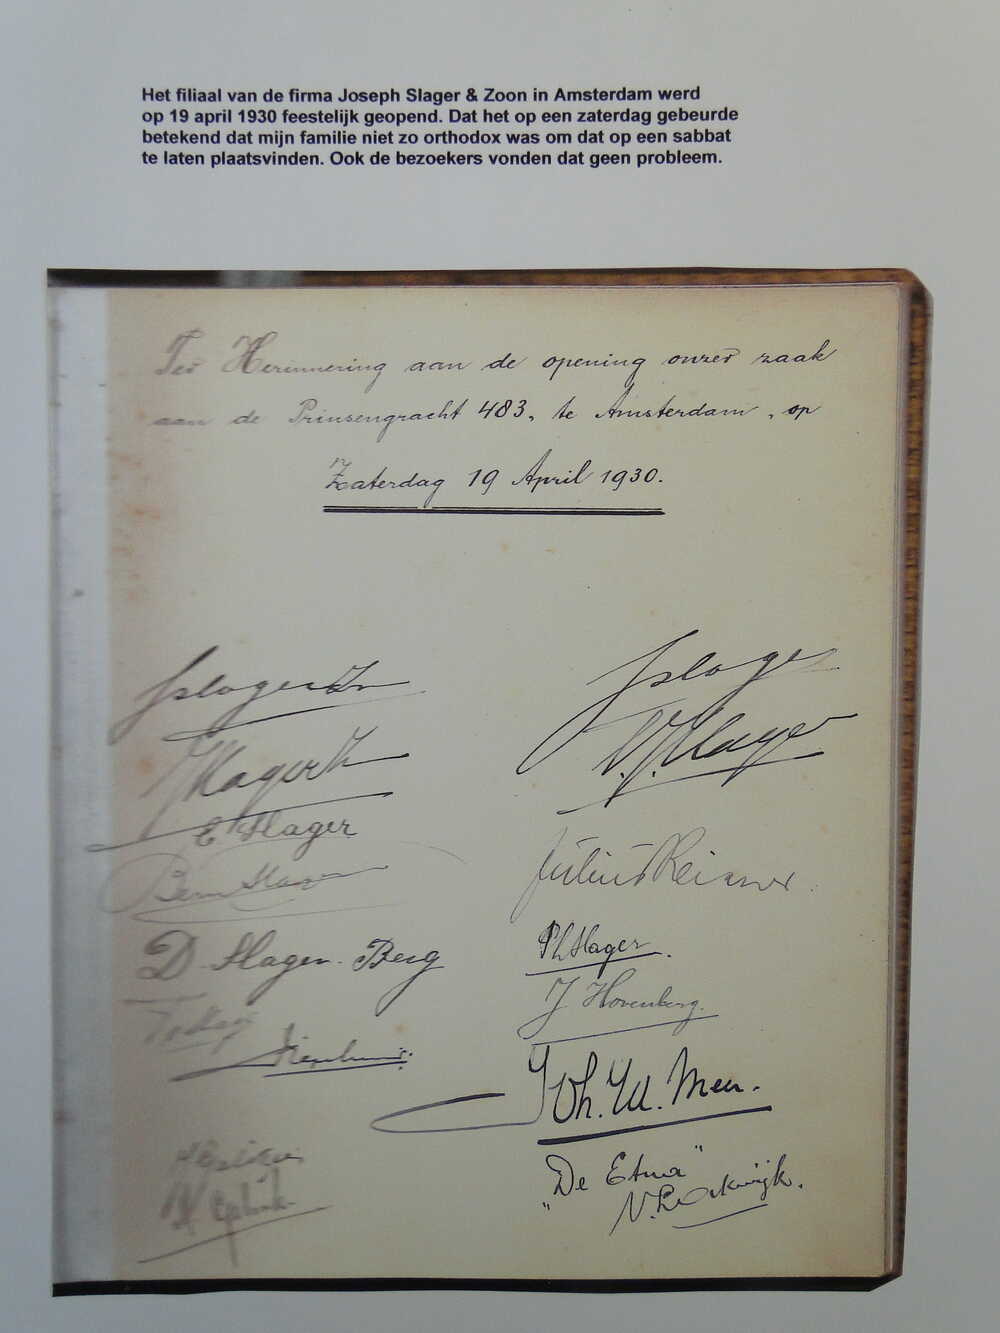 Het filiaal van de firma Joseph Slager & Zoon in Amsterdam werd
op 19 april 1930 feestelijk geopend. Dat het op een zaterdag gebeurde
betekend dat mijn familie niet zo orthodox was om dat op een sabbat
te laten plaatsvinden. Ook de bezoekers vonden dat geen probleem.
Ter Herinnering aan de opening onzer zaak
aan de Prinsengracht 483, te Amsterdam, op
Zaterdag 19 April 1930.
JSlager
JSlager
E Slager
Bern Slager
D. Slager-Berg
JSlager
Slager
Julius
Ph Slager.
J Hovenberg.
Joh. W. Meer.
"De Etna"